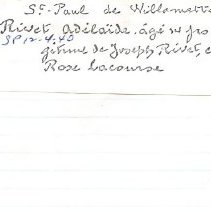 St-Paul de Willamette
Rivet Adélaïde, âgé
SP12-4-40
de Joseph Rivet,
Rose Lacourse